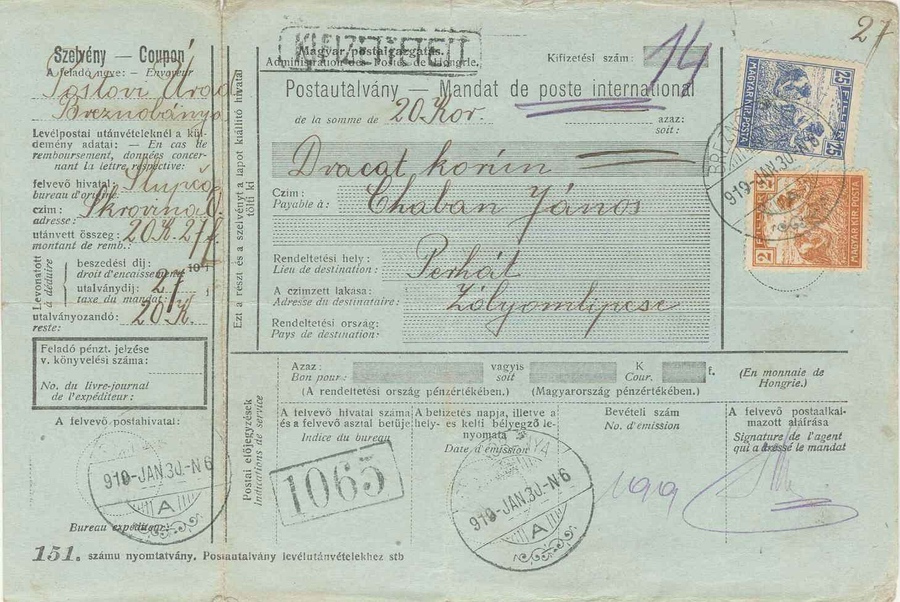 27
Szelvény — Coupon
A feladó neve: — Envoyeur
Postovi Úrad
Breznobánya
Levélpostai utánvételeknél a kül-
demény adatai: — En cas de
remboursement, données concer-
nant la lettre respective:
felvevő hivatal:
bureau d'origine:
czim: Skrovina
adresse:
utánvett összeg: 20K. 27f
montant de remb.:
Levonatott
à déduire
beszedési díj:
droit d'encaissement 10f
utalványdíj: 27
taxe du mandat:
utalványozandó: 20 K.
reste:
Feladó pénzt. jelzése
v. könyvelési száma:
No. du livre-journal
de l'expéditeur:
A felvevő postahivatal:
919-JAN.30.-N6
A
Bureau expéditeur:
151. számu nyomtatvány. Postautalvány levélutánvételekhez stb
Ezt a részt és a szelvényt a lapot kiállító hivatal
tölti ki
KIFIZETTETETT
Magyar postaigazgatás.
Administration des Postes de Hongrie.
Kifizetési szám:
14
Postautalvány — Mandat de poste international
de la somme de 20 Kor. azaz:
soit:
Dvacat korún
Czim: Chaban János
Payable à:
Rendeltetési hely: Perhát
Lieu de destination:
A czimzett lakása: Zólyomlipcse
Adresse du destinataire:
Rendeltetési ország:
Pays de destination:
25 FILLÉR 25
MAGYAR KIR. POSTA
2 FILLÉR 2
MAGYAR KIR. POSTA
919-JAN.30.-N6
Azaz: vagyis K f. (En monnaie de
Bon pour: soit Cour. Hongrie.)
(A rendeltetési ország pénzértékében.) (Magyarország pénzértékében.)
Postai előjegyzések
Indications de service
A felvevő hivatal száma
és a felvevő asztal betűje:
Indice du bureau
1065
A befizetés napja, illetve a
hely- és kelti bélyegző le-
nyomata
Date d'émission
919-JAN.30.-N6
A
Bevételi szám
No. d'émission
A felvevő postaalkal-
mazott aláírása
Signature de l'agent
qui a dressé le mandat